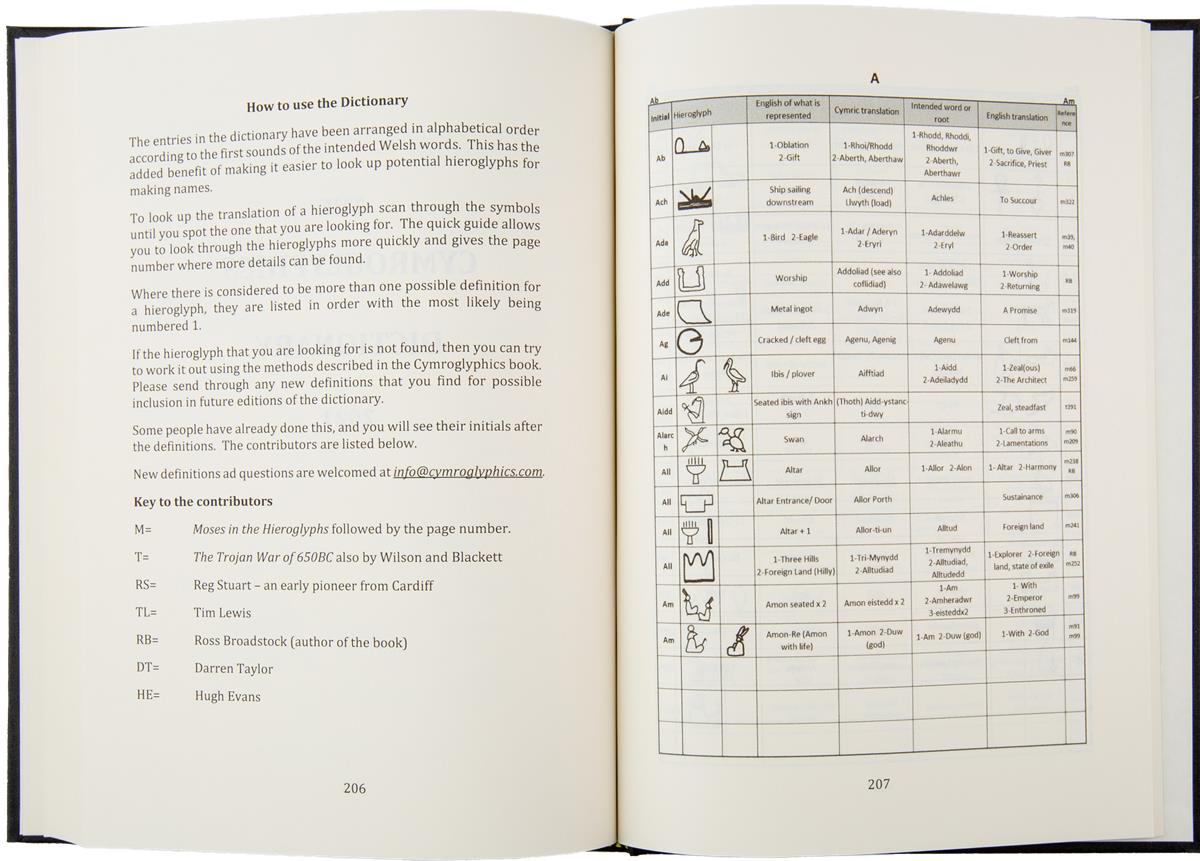 How to use the Dictionary
The entries in the dictionary have been arranged in alphabetical order
according to the first sounds of the intended Welsh words. This has the
added benefit of making it easier to look up potential hieroglyphs for
making names.
To look up the translation of a hieroglyph scan through the symbols
until you spot the one that you are looking for. The quick guide allows
you to look through the hieroglyphs more quickly and gives the page
number where more details can be found.
Where there is considered to be more than one possible definition for
a hieroglyph, they are listed in order with the most likely being
numbered 1.
If the hieroglyph that you are looking for is not found, then you can try
to work it out using the methods described in the Cymroglyphics book.
Please send through any new definitions that you find for possible
inclusion in future editions of the dictionary.
Some people have already done this, and you will see their initials after
the definitions. The contributors are listed below.
New definitions ad questions are welcomed at info@cymroglyphics.com.
Key to the contributors
M= Moses in the Hieroglyphs followed by the page number.
T= The Trojan War of 650BC also by Wilson and Blackett
RS= Reg Stuart – an early pioneer from Cardiff
TL= Tim Lewis
RB= Ross Broadstock (author of the book)
DT= Darren Taylor
HE= Hugh Evans
206
A
Ab Am
Initial Hieroglyph English of what is represented Cymric translation Intended word or root English translation Refere nce
Ab 1-Oblation 2-Gift 1-Rhoi/Rhodd 2-Aberth, Aberthaw 1-Rhodd, Rhoddi, Rhoddwr 2-Aberth, Aberthawr 1-Gift, to Give, Giver 2-Sacrifice, Priest m307 RB
Ach Ship sailing downstream Ach (descend) Llwyth (load) Achles To Succour m322
Ada 1-Bird 2-Eagle 1-Adar / Aderyn 2-Eryri 1-Adarddelw 2-Eryl 1-Reassert 2-Order m39, m40
Add Worship Addoliad (see also coflidiad) 1- Addoliad 2- Adawelawg 1-Worship 2-Returning RB
Ade Metal ingot Adwyn Adewydd A Promise m319
Ag Cracked / cleft egg Agenu, Agenig Agenu Cleft from m144
Ai Ibis / plover Aifftiad 1-Aidd 2-Adeiladydd 1-Zeal(ous) 2-The Architect m66 m259
Aidd Seated ibis with Ankh sign (Thoth) Aidd-ystanc-ti-dwy Zeal, steadfast t291
Alarc h Swan Alarch 1-Alarmu 2-Aleathu 1-Call to arms 2-Lamentations m90 m209
All Altar Allor 1-Allor 2-Alon 1- Altar 2-Harmony m238 RB
All Altar Entrance/ Door Allor Porth Sustainance m306
All Altar + 1 Allor-ti-un Alltud Foreign land m241
All 1-Three Hills 2-Foreign Land (Hilly) 1-Tri-Mynydd 2-Alltudiad 1-Tremynydd 2-Alltudiad, Alltudedd 1-Explorer 2-Foreign land, state of exile RB m252
Am Amon seated x 2 Amon eistedd x 2 1-Am 2-Amheradwr 3-eisteddx2 1- With 2-Emperor 3-Enthroned m99
Am Amon-Re (Amon with life) 1-Amon 2-Duw (god) 1-Am 2-Duw (god) 1-With 2-God m91 m99
207